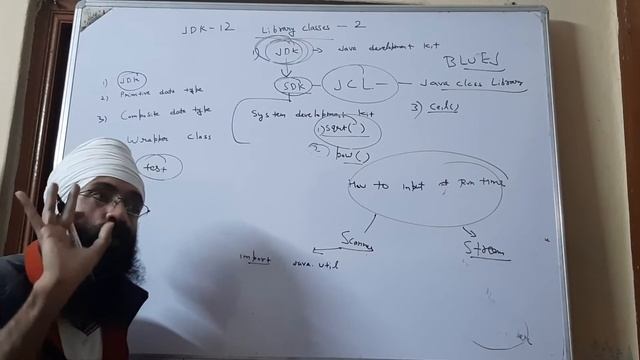 JDK-12 Library classes - 2
1) JDK → Java development kit
BLUEJ
1) JDK
SDK JCL - Java class Library
2) Primitive data type
3) Composite data type
System development kit
3) ceil()
1) sqrt( )
Wrapper class
2) pow( )
test
How to input at Run time
Scanner
Stream
import java.util